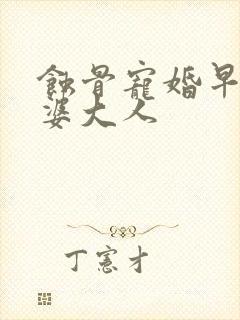 蝕骨寵婚早
婆大人
丁憲才